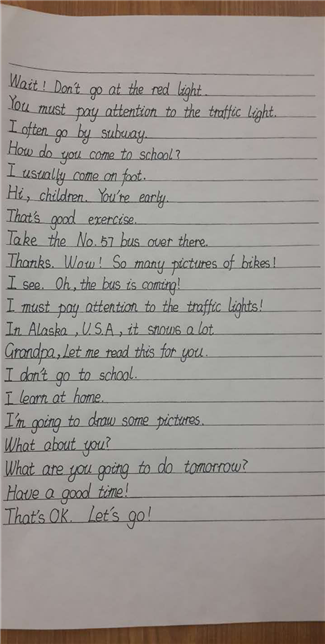 Wait! Don't go at the red light.
You must pay attention to the traffic light.
I often go by subway.
How do you come to school?
I usually come on foot.
Hi, children. You're early.
That's good exercise.
Take the No.57 bus over there.
Thanks. Wow! So many pictures of bikes!
I see. Oh, the bus is coming!
I must pay attention to the traffic lights!
In Alaska, U.S.A, it snows a lot
Grandpa, Let me read this for you.
I don't go to school.
I learn at home.
I'm going to draw some pictures.
What about you?
What are you going to do tomorrow?
Have a good time!
That's OK. Let's go!